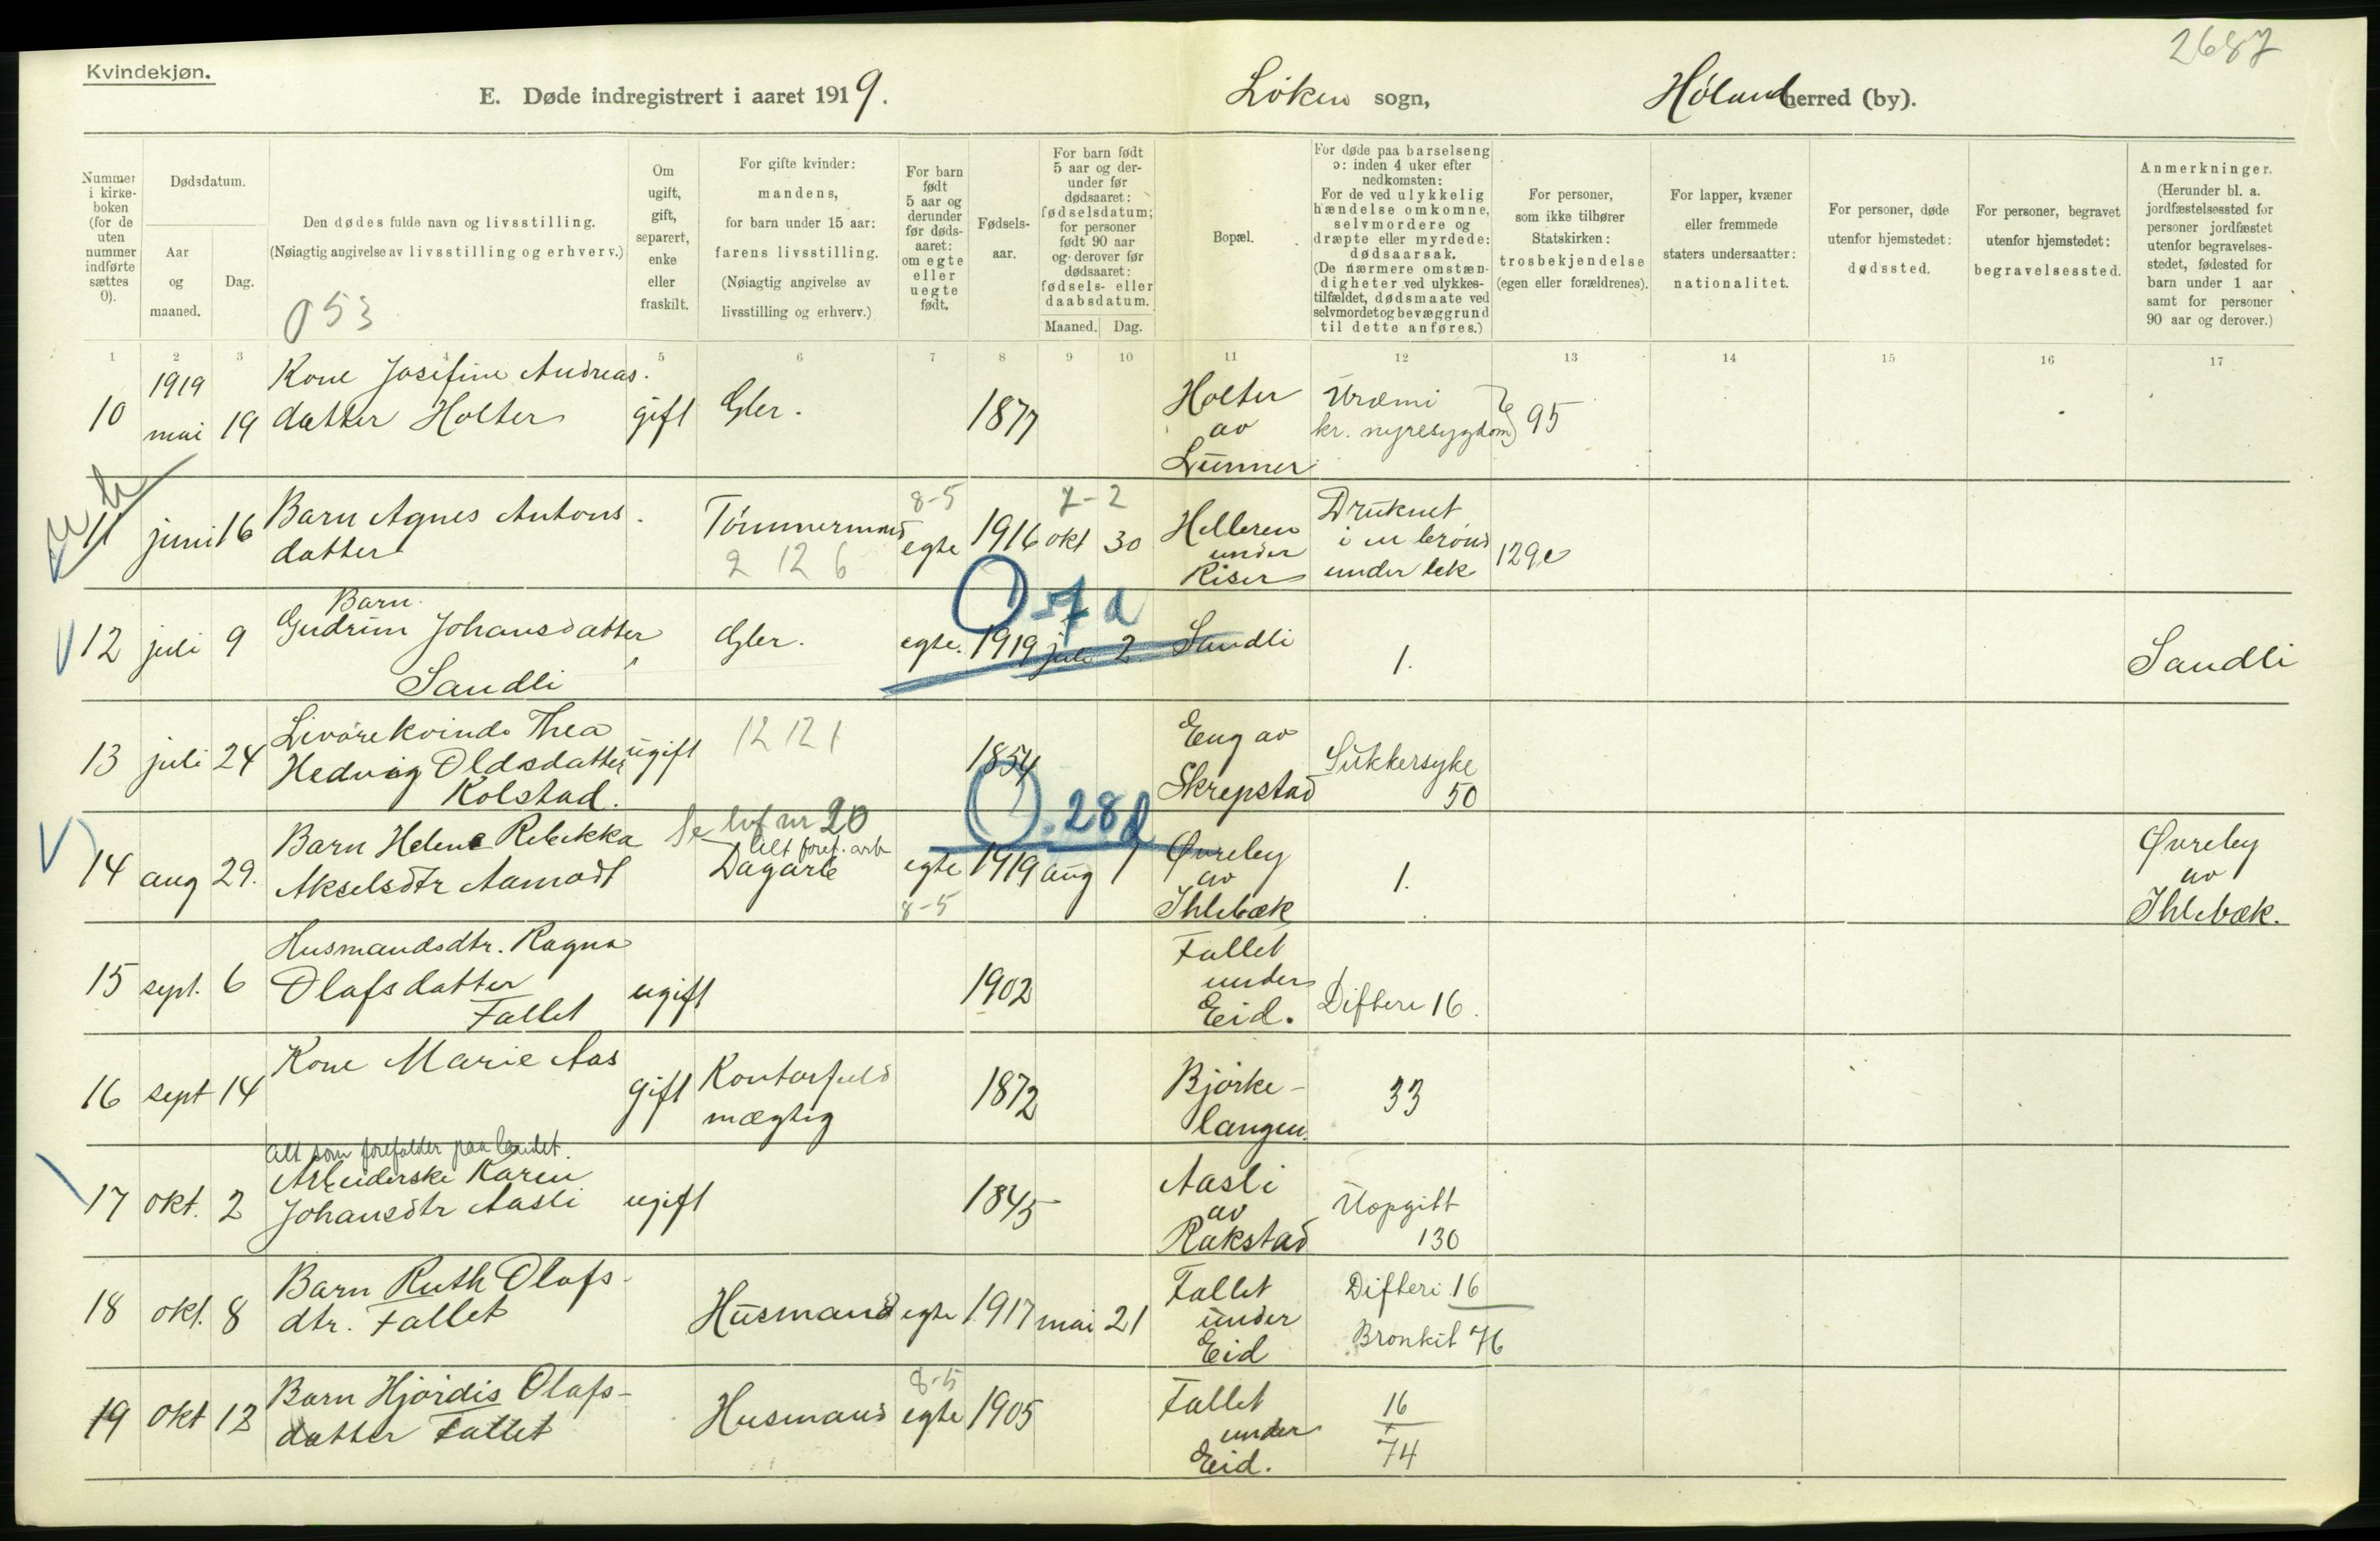 2687
Kvindekjøn.
E. Døde indregistrert i aaret 1919.
Løken sogn,
Høland herred (by).
Nummer i kirkeboken (for de uten nummer indførte sættes 0).
Dødsdatum.
Aar og maaned.
Dag.
Den dødes fulde navn og livsstilling.
(Nøiagtig angivelse av livsstilling og erhverv.)
053
Om ugift, gift, separert, enke eller fraskilt.
For gifte kvinder: mandens, for barn under 15 aar: farens livsstilling. (Nøiagtig angivelse av livsstilling og erhverv.)
For barn født 5 aar og derunder før dødsaaret: om egte eller uegte født.
Fødselsaar.
For barn født 5 aar og derunder før dødsaaret: fødselsdatum; for personer født 90 aar og derover før dødsaaret: fødsels- eller daabsdatum.
Maaned. Dag.
Bopæl.
For døde paa barselseng ɔ: inden 4 uker efter nedkomsten: For de ved ulykkelig hændelse omkomne, selvmordere og dræpte eller myrdede: dødsaarsak. (De nærmere omstændigheter ved ulykkestilfældet, dødsmaate ved selvmordet og bevæggrund til dette anføres.)
For personer, som ikke tilhører Statskirken: trosbekjendelse (egen eller forældrenes).
For lapper, kvæner eller fremmede staters undersaatter: nationalitet.
For personer, døde utenfor hjemstedet: dødssted.
For personer, begravet utenfor hjemstedet: begravelsessted.
Anmerkninger. (Herunder bl. a. jordfæstelsessted for personer jordfæstet utenfor begravelsesstedet, fødested for barn under 1 aar samt for personer 90 aar og derover.)
1 2 3 4 5 6 7 8 9 10 11 12 13 14 15 16 17
10 1919 mai 19 Kone Josefine Andreas-
datter Holter gift Gbr. 1877 Holter av Lunner Uræmi kr. nyresygdom 95
11 juni 16 Barn Agnes Antons-
datter Tømmermand 2 12 6 8-5 egte 1916 7-2 okt 30 Helleren under Riser Druknet i en brønd under lek 129e
12 juli 9 Barn
Gudrun Johansdatter
Sandli Gbr. egte. 1919 juli 2 7 d Sandli 1. Sandli
13 juli 24 Livørekvinde Thea
Hedvig Oldsdatter
Kolstad. ugift 12 12 1 1854 Eng av Skrepstad Sukkersyke 50
14 aug 29. Barn Helene Rebekka
Akselsdtr Aamodt Se lvf nr 20 Alt foref. arb Dagarb egte 8-5 1919 aug 1 28 d Øvreby av Ihlebæk 1. Øvreby av Ihlebæk.
15 sept. 6 Husmandsdtr. Ragna
Olafsdatter
Fallet ugift 1902 Fallet under Eid. Difteri 16.
16 sept 14 Kone Marie Aas gift Kontorfuld
mægtig 1872 Bjørke-
langen. 33
17 okt. 2 Alt som forefalder paa landet.
Arbeiderske Karen
Johansdtr Aasli ugift 1845 Aasli av Rakstad Uopgitt 130
18 okt. 8 Barn Ruth Olafs-
dtr. Fallet Husmand egte 1917 mai 21 Fallet under Eid Difteri 16
Bronkit 76
19 okt 12 Barn Hjørdis Olafs-
datter Fallet Husmand 8-5 egte 1905 Fallet under Eid. 16
74